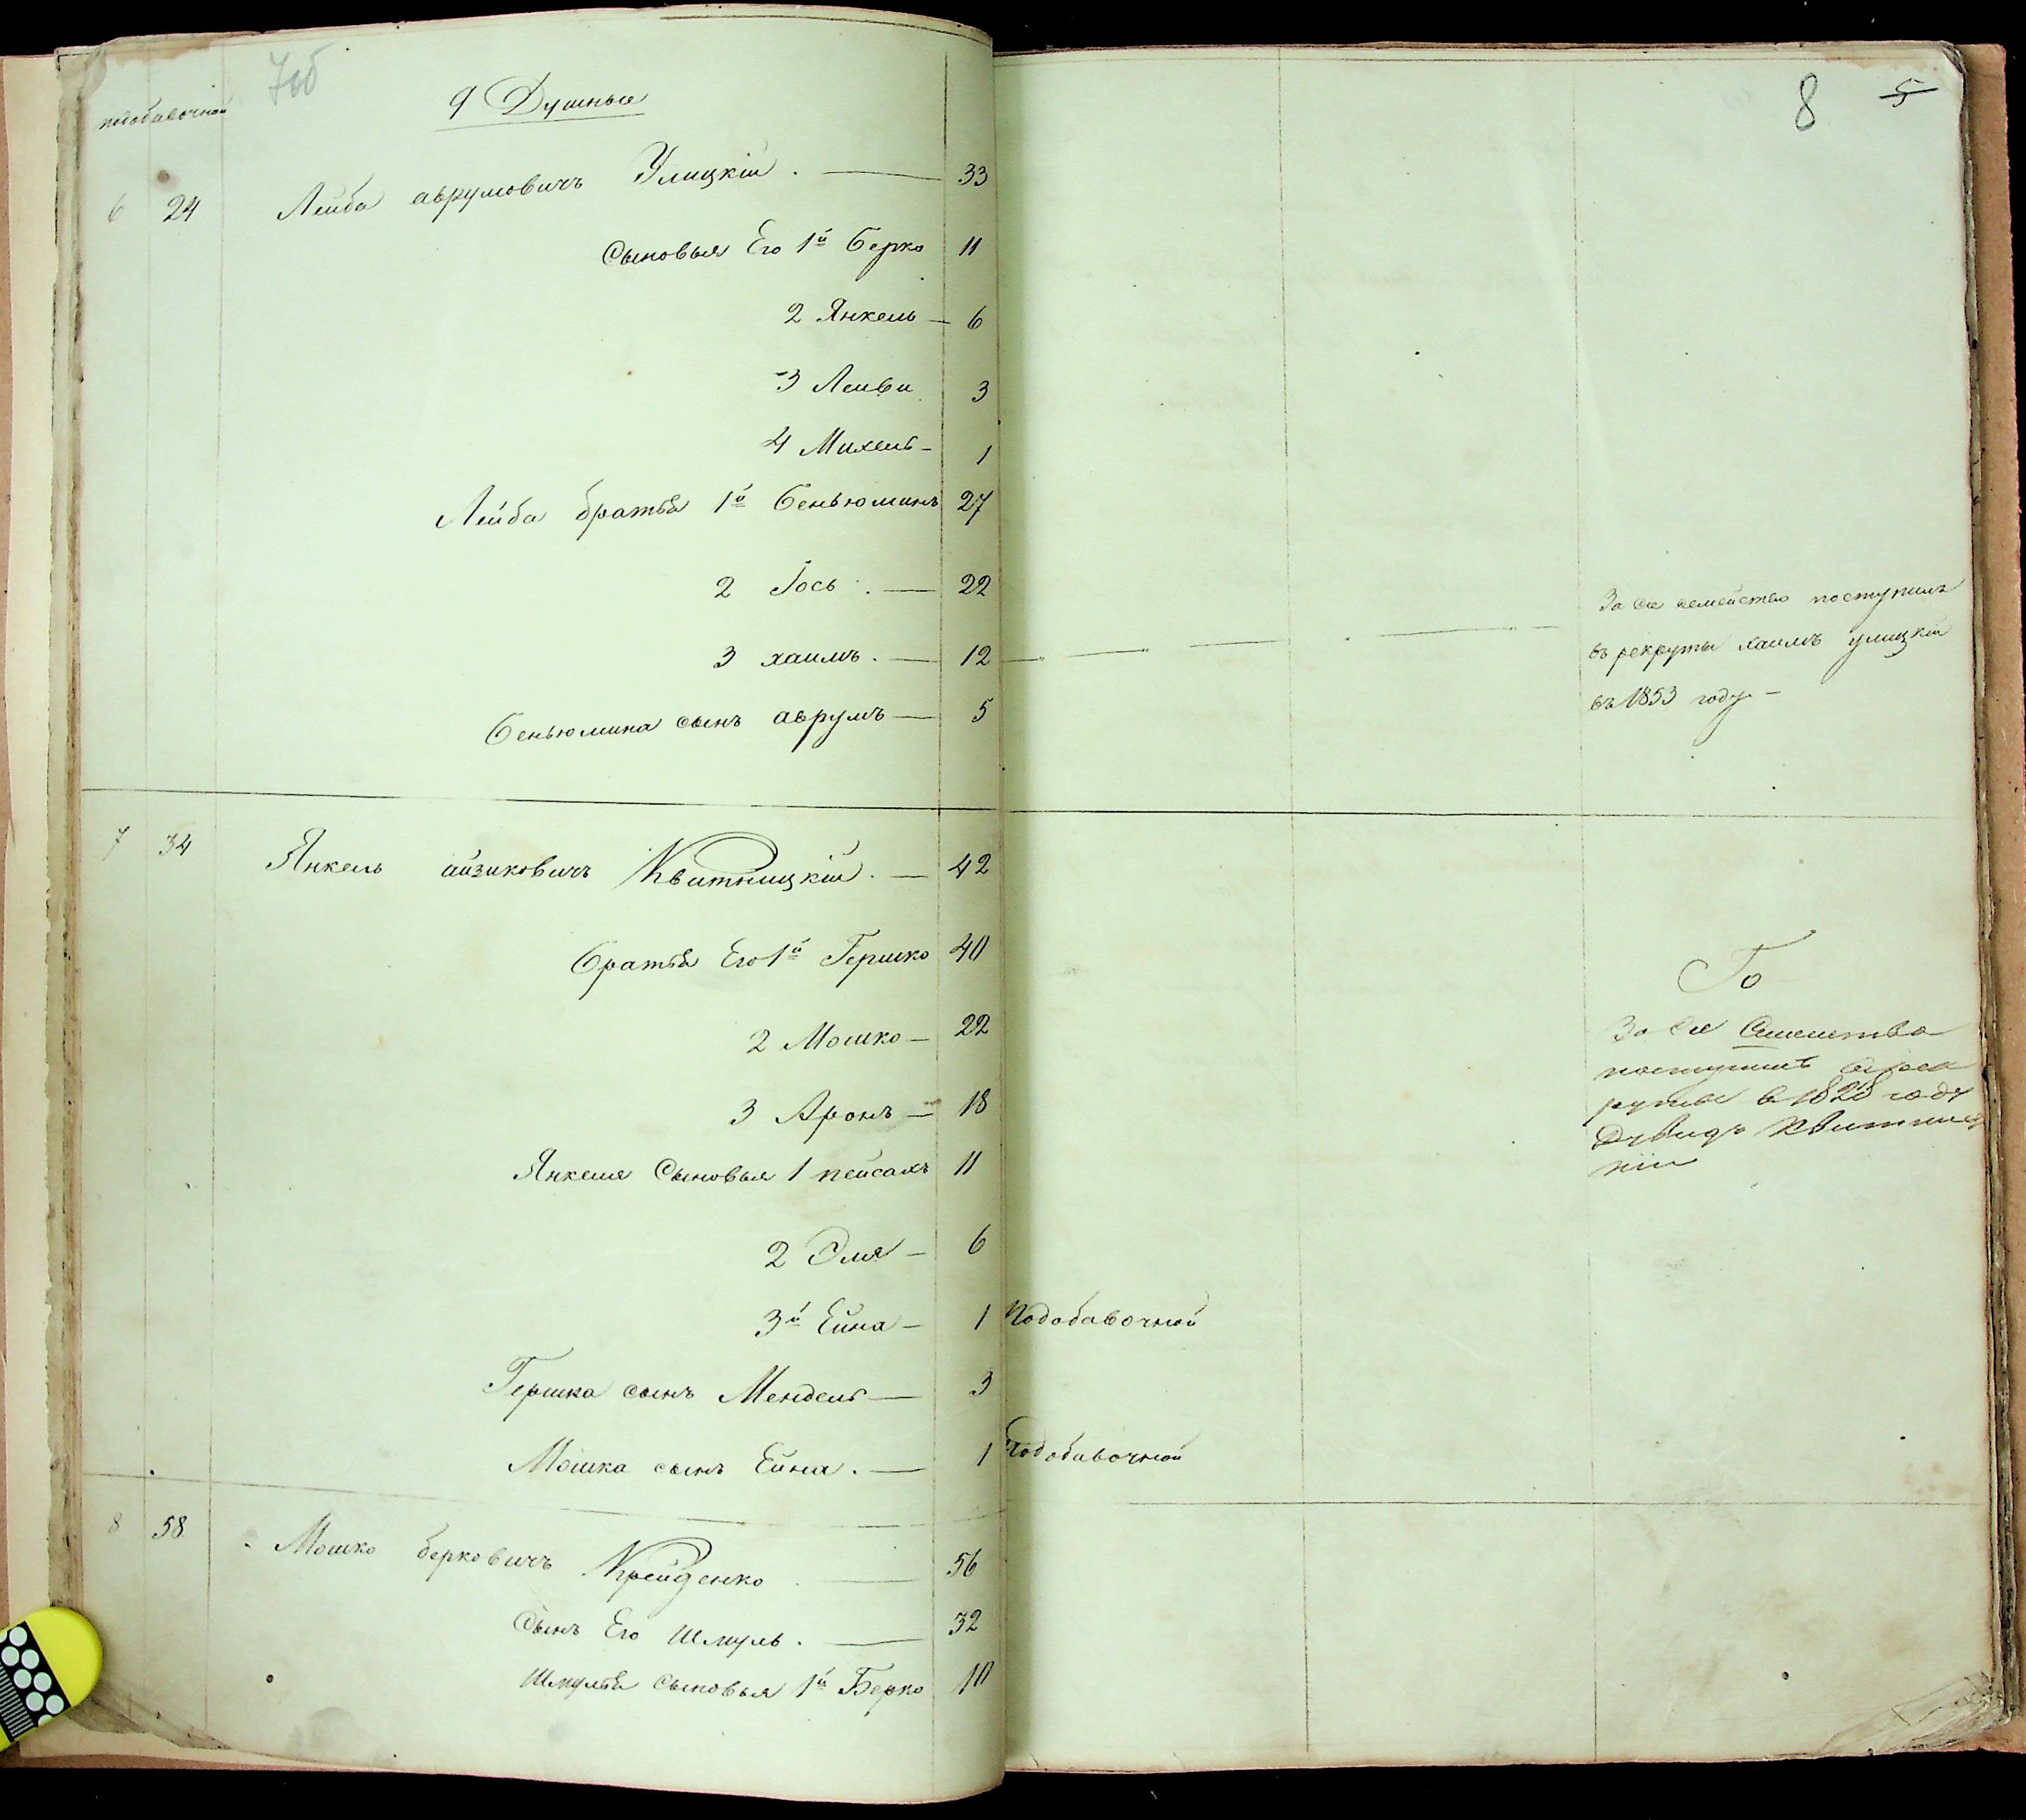 7об
подобавочной
9 Душные
8 5
6 24 Лейба аврумовичъ Улицкій . — 33
Сыновья Его 1й Берко 11
2 Янкель — 6
3 Лейви 3
4 Михель — 1
Лейба братья 1й Беньюминъ 27
2 Іось . — 22
3 хаимъ . — 12
Беньюмина сынъ аврумъ — 5
За сіе семейство поступилъ
въ рекруты хаимъ улицкій
въ 1853 году —
7 34 Янкель айзиковичъ Квитницкій . — 42
братья Его 1й Гершко 40
2 Мошко — 22
3 Аронъ — 18
Янкеля Сыновья 1 пейсахъ 11
2 Эля — 6
3й Ейна — 1 Подобавочной
Гершка сынъ Мендель — 3
Мошка сынъ Ейна . — 1 Подобавочной
То
За сіе Семейства
поступилъ
руты в 1828 году
Дувидъ Квитниц
кій
8 58 Мошко берковичъ Крейденко . — 56
Сынъ Его Шмуль . — 32
Шмуля Сыновья 1й Берко 10